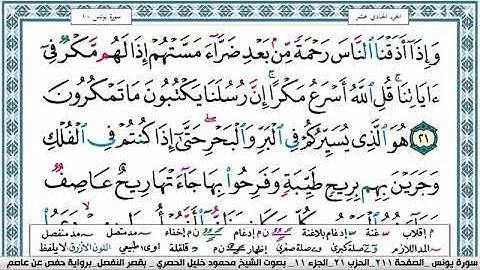 الجزء الحادي عشر
سورة يونس ١٠
وَإِذَا أَذَقْنَا النَّاسَ رَحْمَةً مِّن بَعْدِ ضَرَّاءَ مَسَّتْهُمْ إِذَا لَهُم مَّكْرٌ فِي
ءَايَاتِنَا قُلِ اللَّهُ أَسْرَعُ مَكْرًا إِنَّ رُسُلَنَا يَكْتُبُونَ مَا تَمْكُرُونَ
٢١ هُوَ الَّذِي يُسَيِّرُكُمْ فِي الْبَرِّ وَالْبَحْرِ حَتَّى إِذَا كُنتُمْ فِي الْفُلْكِ
وَجَرَيْنَ بِهِم بِرِيحٍ طَيِّبَةٍ وَفَرِحُوا بِهَا جَاءَتْهَا رِيحٌ عَاصِفٌ
إقلاب غنة إدغام بلاغنة إدغام إخفاء مد متصل مد منفصل
المد اللازم صلة كبرى صلة صغرى إظهار قلقلة طبيعي اللون الأزرق لا يلفظ
سورة يونس _ الصفحة ٢١١ _ الحزب ٢١ _ الجزء ١١ _ بصوت الشيخ محمود خليل الحصري _ بقصر المنفصل _ برواية حفص عن عاصم